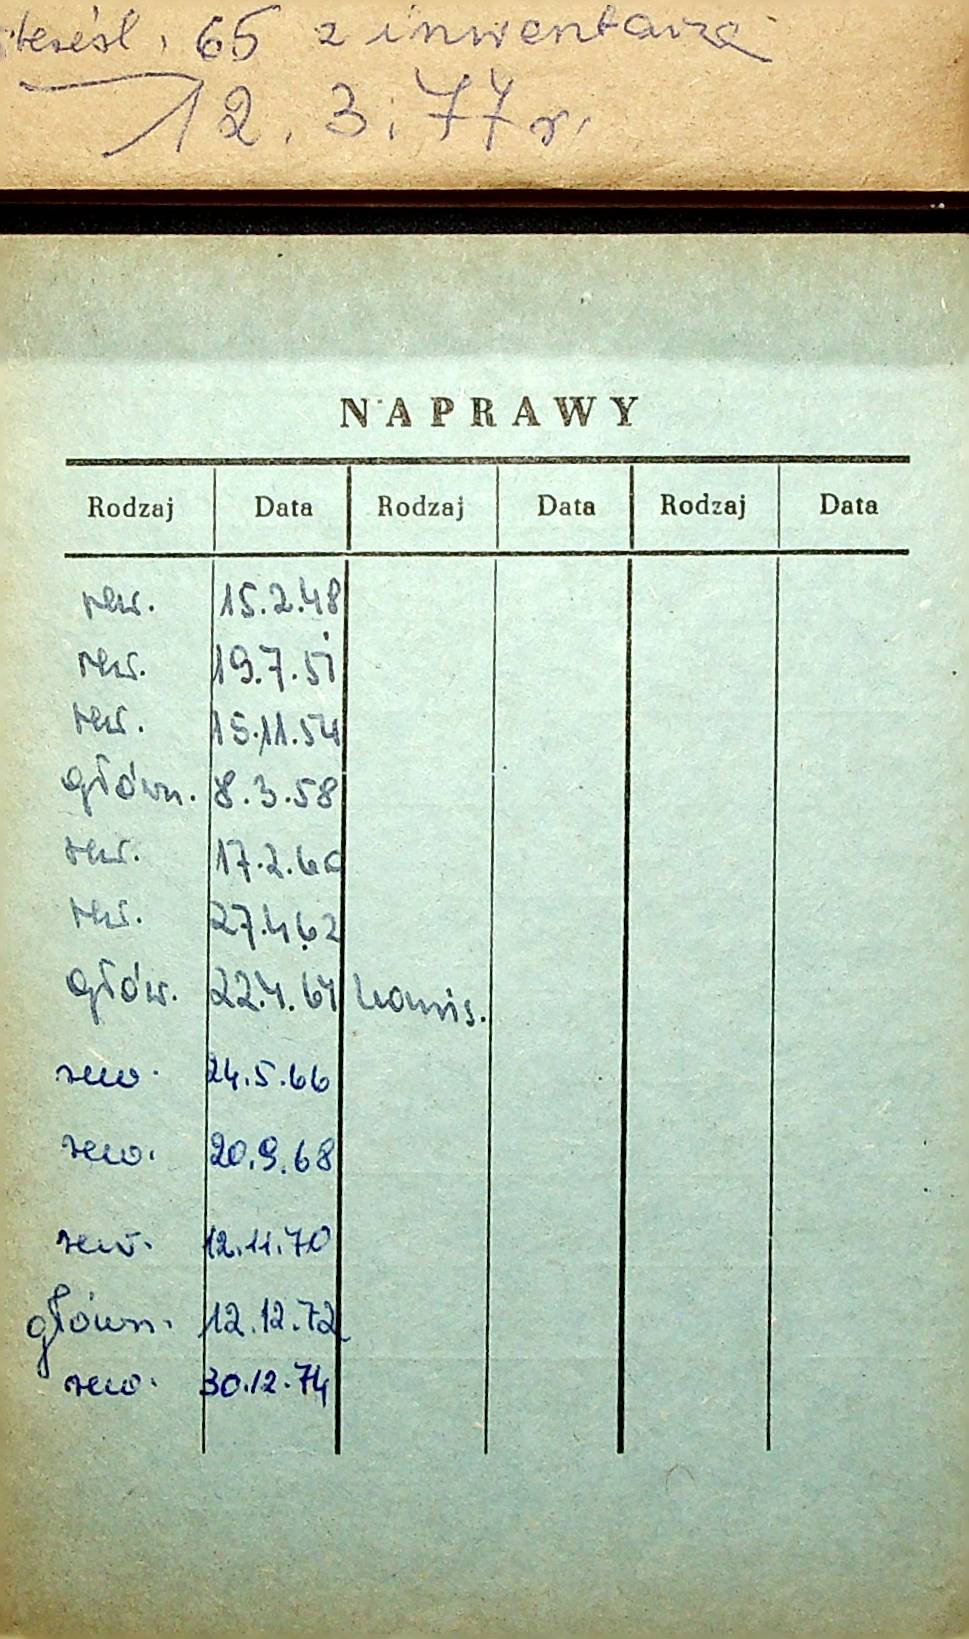 65 z inwentarza
12.3.77r.
NAPRAWY
Rodzaj Data Rodzaj Data Rodzaj Data
rew. 15.2.48
rew. 19.7.51
rew. 15.11.54
główn. 8.3.58
rew. 17.2.60
rew. 27.4.62
głów. 22.4.64
rew. 24.5.66
rew. 20.9.68
rew. 12.11.70
główn. 12.12.72
rew. 30.12.74